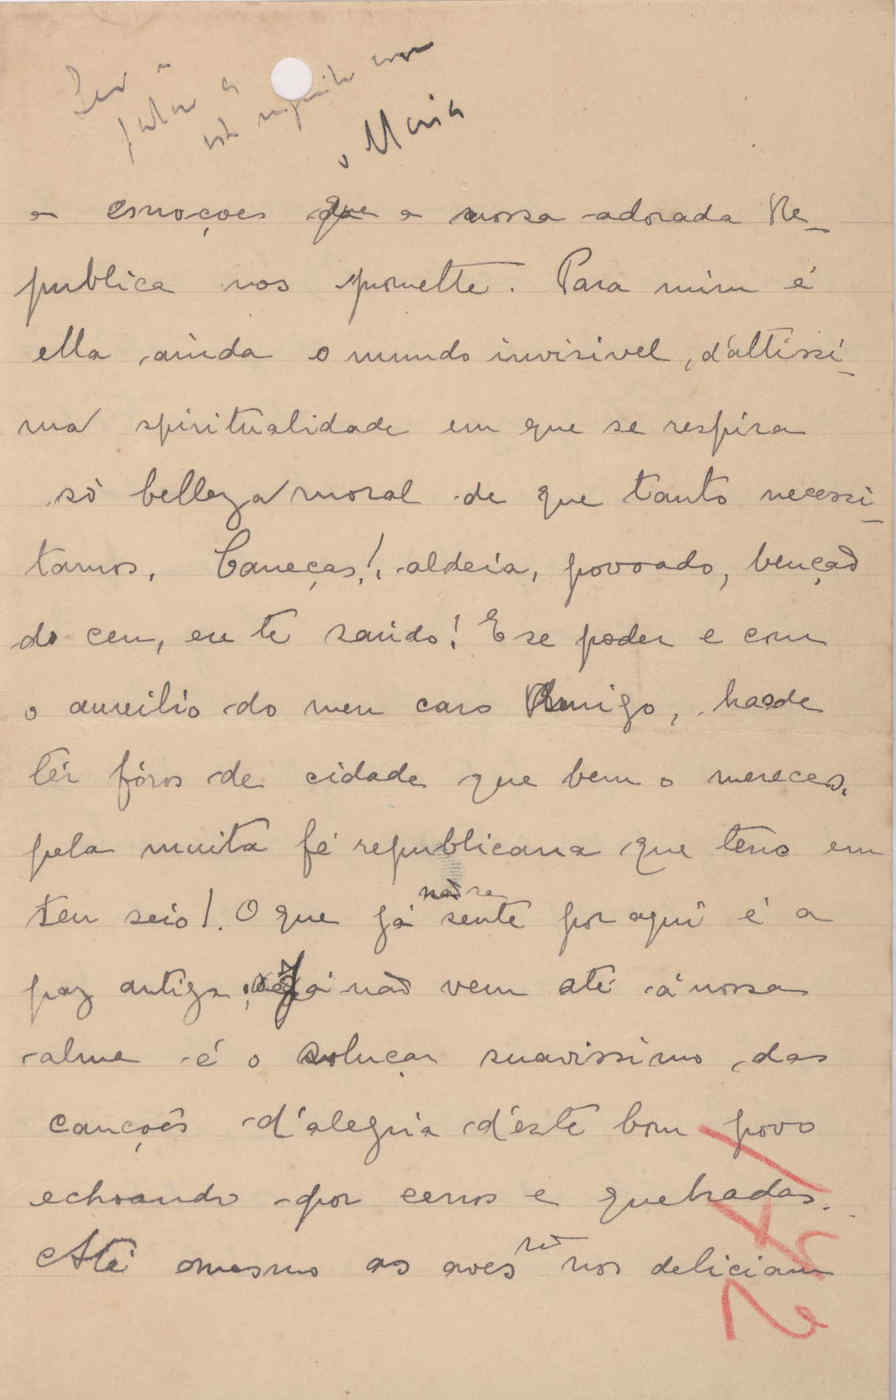 Maria
e emoções que a nossa adorada Re-
publica nos promette. Para mim é
ella ainda o mundo invisivel, d'altissi-
ma spiritualidade em que se respira
só belleza moral de que tanto necessi-
tamos. Caneças!, aldeia, povoado, benção
do ceu, eu te saúdo! E se poder e com
o auxilio do meu caro Amigo, hasde
têr fóros de cidade que bem o mereces,
pela muita fé republicana que tens em
não se
teu seio!. O que já sente por aqui é a
paz antiga; já não vem até á nossa
alma é o soluçar suavissimo das
canções d'alegria d'este bom povo
echoando por cerros e quebradas.
Até mesmo as aves nos deliciam